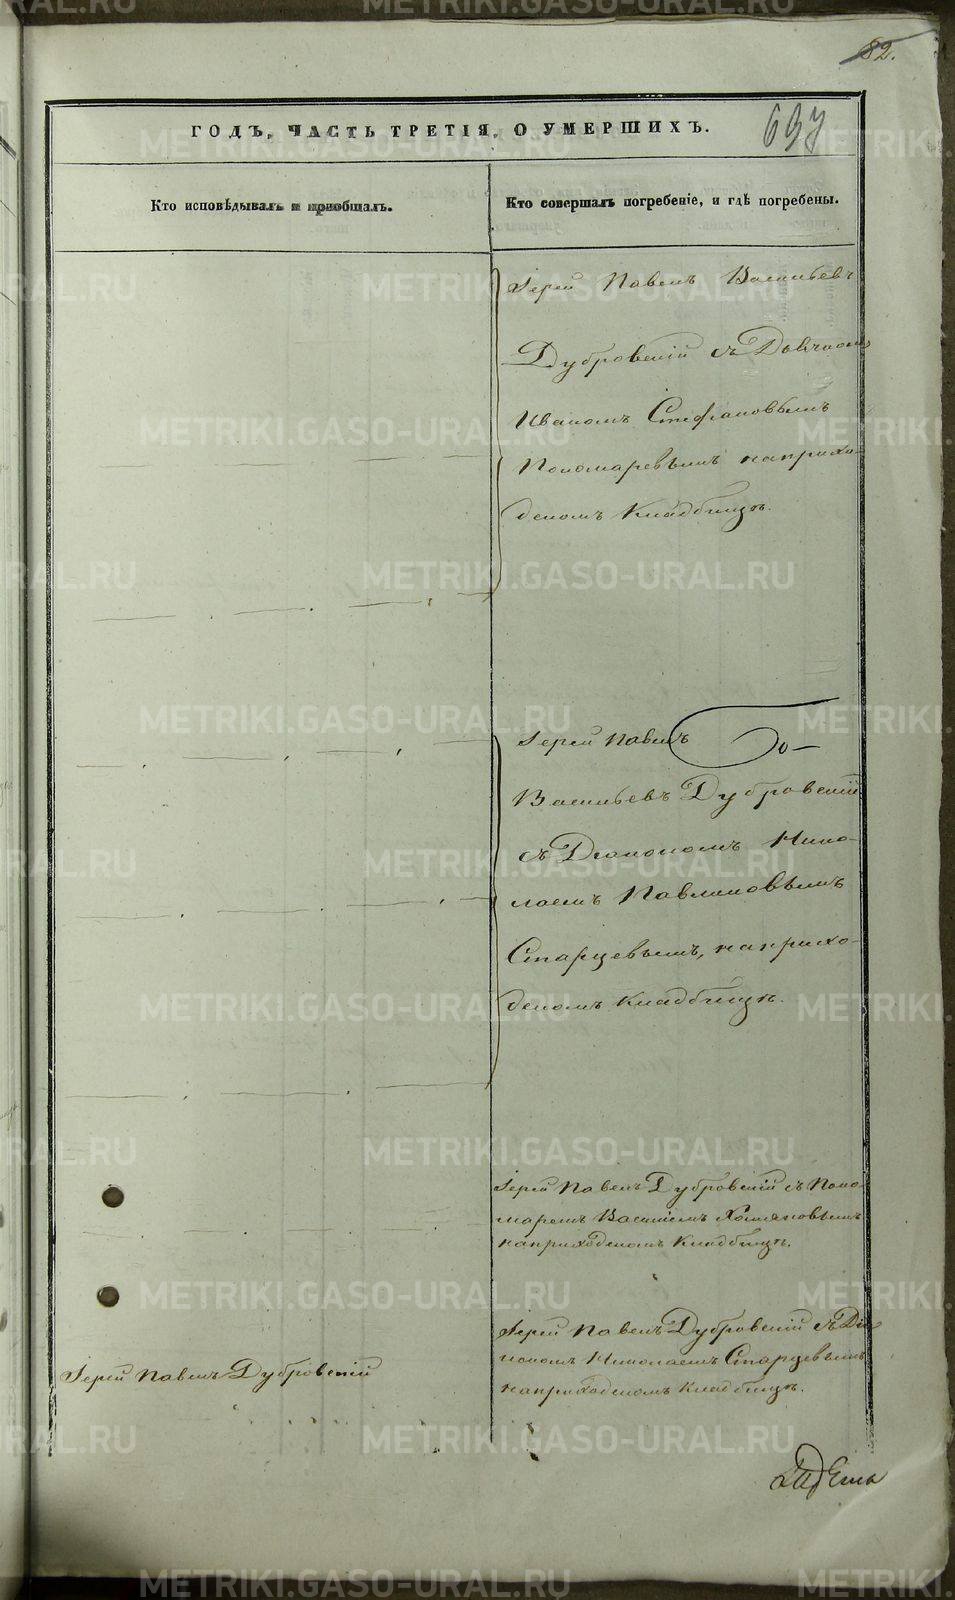 82.
697
ГОДЪ, ЧАСТЬ ТРЕТІЯ, О УМЕРШИХЪ.
Кто исповѣдывалъ и приобщалъ.
Кто совершалъ погребеніе, и гдѣ погребены.
Іерей Павелъ Васильевъ
Дубровскій съ Дьячкомъ
Иваномъ Стефановымъ
Пономаревымъ на прихо-
дскомъ Кладбищѣ.
Іерей Павелъ
Васильевъ Дубровскій
съ Діакономъ Нико-
лаемъ Павлиновымъ
Старцевымъ, на прихо-
дскомъ Кладбищѣ.
Іерей Павелъ Дубровскій съ Поно-
маремъ Василіемъ Хомяковымъ
на приходскомъ Кладбищѣ.
Іерей Павелъ Дубровскій съ Діа
кономъ Николаемъ Старцевымъ
на приходскомъ Кладбищѣ.
Іерей Павелъ Дубровскій
METRIKI.GASO-URAL.RU